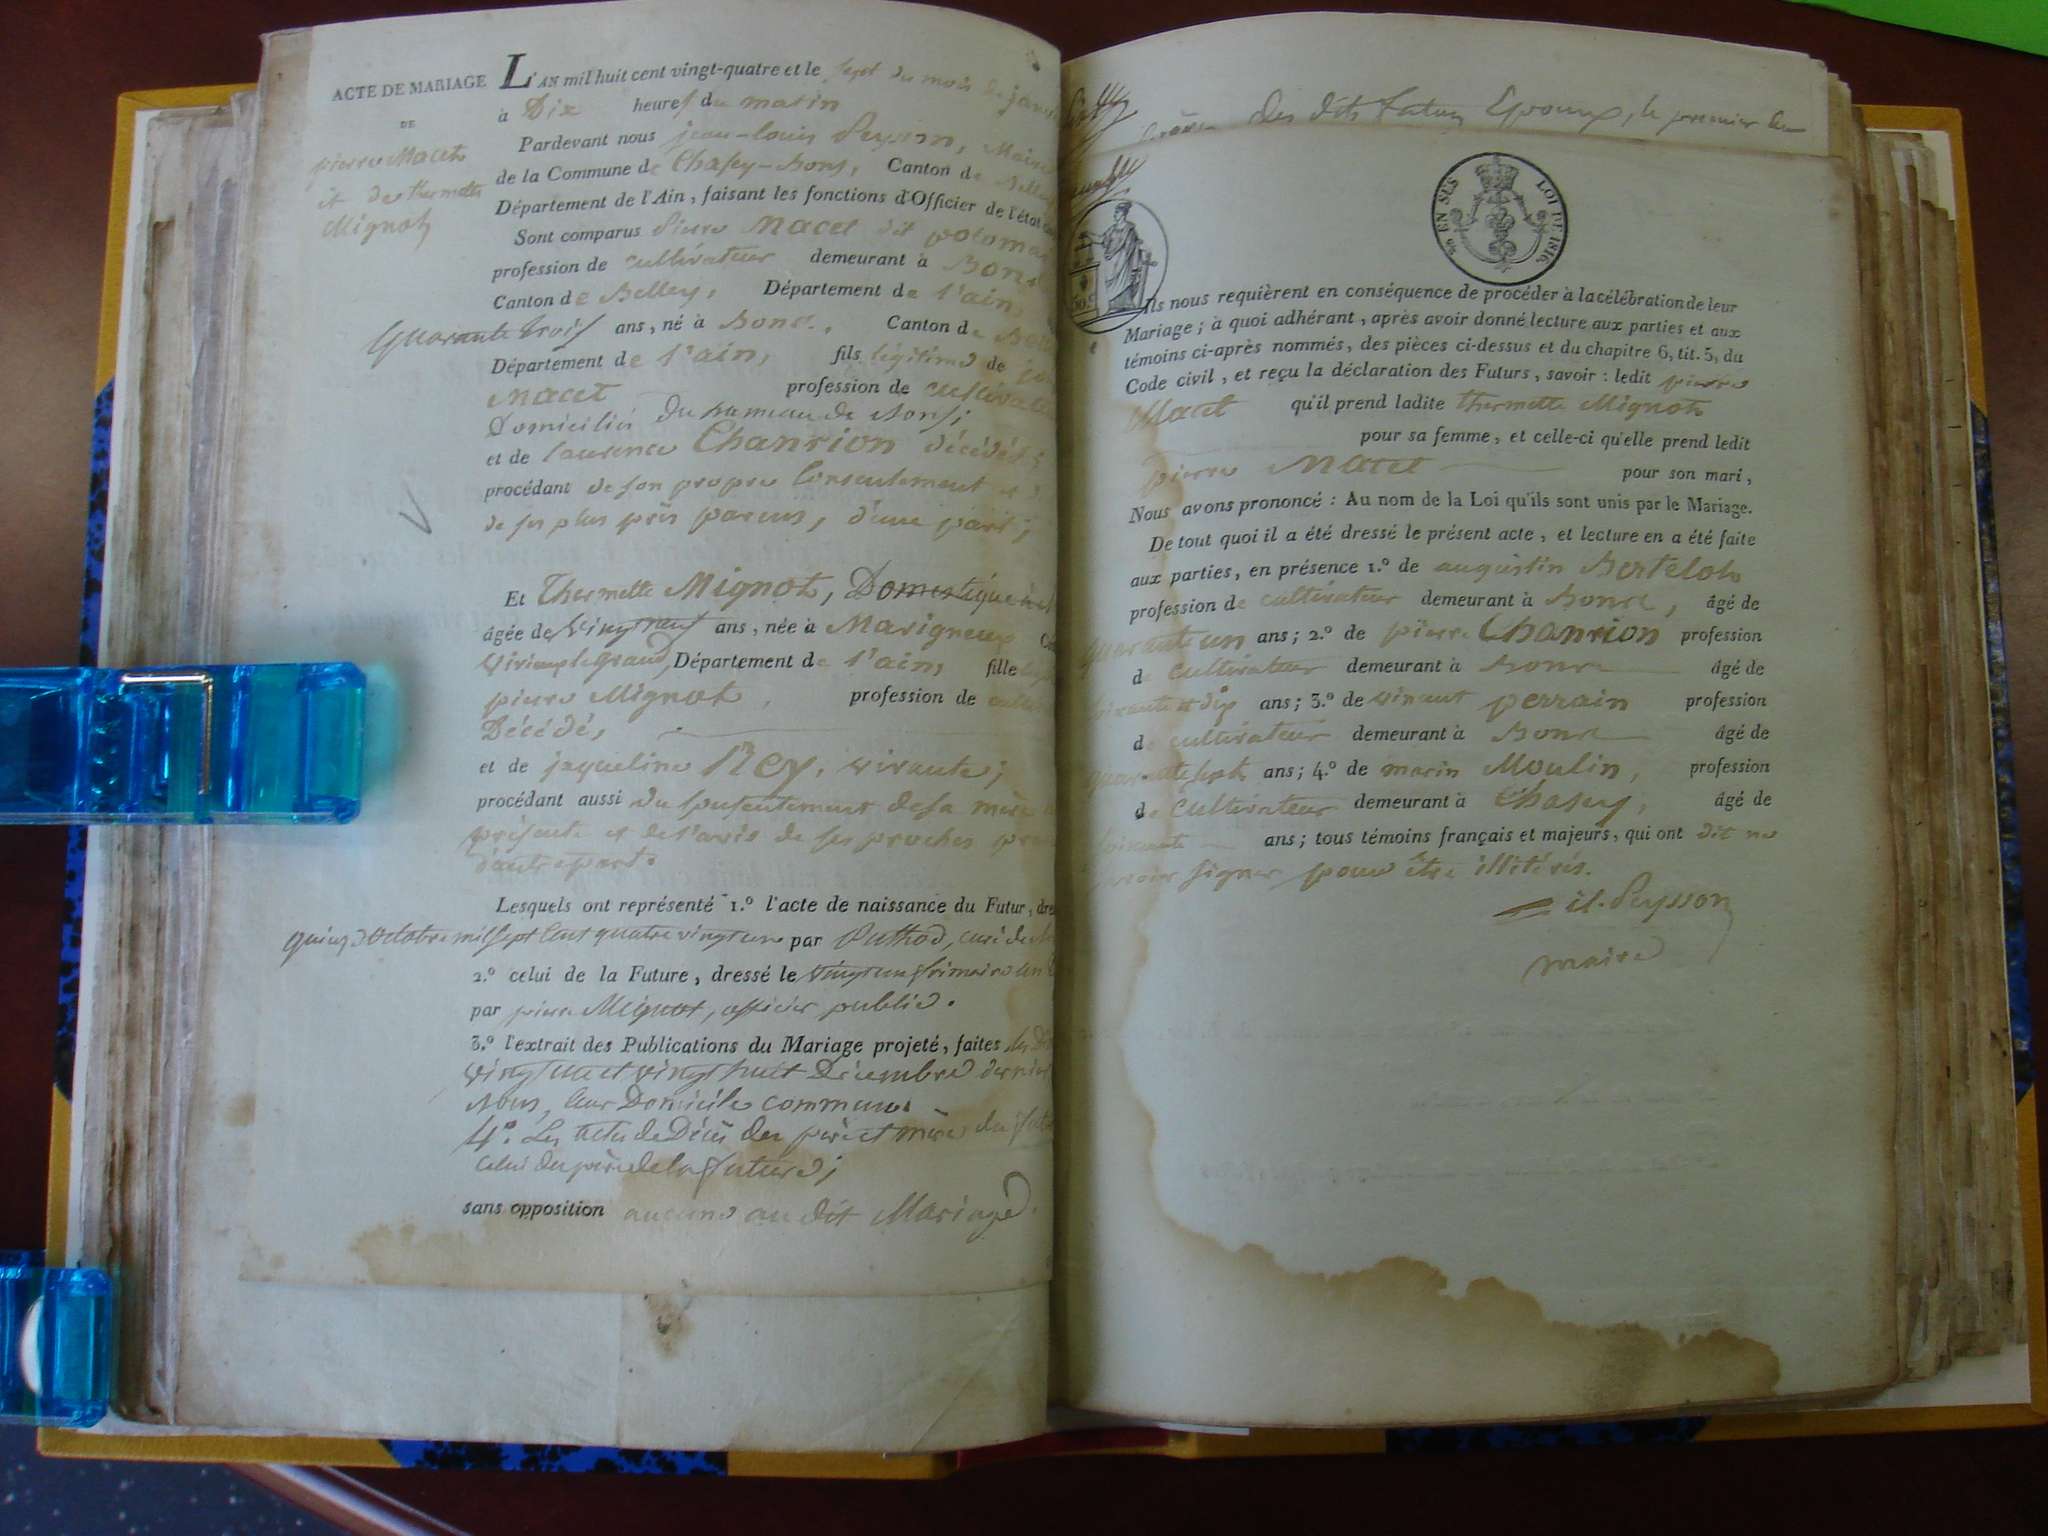 ACTE DE MARIAGE
DE
pierre Macet
et de thermette
Mignot
L'AN mil huit cent vingt-quatre et le sept du mois de janv
à Dix heures du matin
Pardevant nous jean-louis Peysson, Maire
de la Commune de Chasey-Bons, Canton de Belley
Département de l'Ain, faisant les fonctions d'Officier de l'état
Sont comparus Pierre Macet dit
profession de cultivateur demeurant à Bons
Canton de Belley, Département de l'ain,
Quarante trois ans, né à Bons, Canton de
Département de l'ain, fils légitime de
Macet profession de cultivate
Domicilié du hameau de Bons;
et de laurence Chanrion décédée
procédant de son propre Consentement et
de ses plus près parens, d'une part;
Et Thermette Mignot, Domestique à
âgée de vingt neuf ans, née à Marigneux
virieu le grand, Département de l'ain, fille
pierre Mignot, profession de
Décédé,
et de jaqueline Rey, vivante;
procédant aussi du consentement de sa mère
présente et de l'avis de ses proches
d'autre part.
Lesquels ont représenté 1.º l'acte de naissance du Futur, dre
quinze octobre mil sept cent quatre vingt un par Puthod, curé de
2.º celui de la Future, dressé le vingt un frimaire an
par pierre Mignot, officier public.
3.º l'extrait des Publications du Mariage projeté, faites les
vingt un et vingt huit Décembre dernier
Bons, leur Domicile commun.
4.º Les actes de Décès des père et mère du
celui du père de la future;
sans opposition aucune au dit Mariage.
des dits futurs Epoux, le premier
2% EN SUS LOI DE 1816.
Ils nous requièrent en conséquence de procéder à la célébration de leur
Mariage; à quoi adhérant, après avoir donné lecture aux parties et aux
témoins ci-après nommés, des pièces ci-dessus et du chapitre 6, tit. 5, du
Code civil, et reçu la déclaration des Futurs, savoir: ledit pierre
Macet qu'il prend ladite thermette Mignot
pour sa femme, et celle-ci qu'elle prend ledit
pierre Macet pour son mari,
Nous avons prononcé: Au nom de la Loi qu'ils sont unis par le Mariage.
De tout quoi il a été dressé le présent acte, et lecture en a été faite
aux parties, en présence 1.º de augustin Bertelot
profession de cultivateur demeurant à Bons, âgé de
quarante un ans; 2.º de pierre Chanrion profession
de cultivateur demeurant à Bons âgé de
soixante et dix ans; 3.º de vincent perrain profession
de cultivateur demeurant à Bons âgé de
quarante sept ans; 4.º de marin Moulin, profession
de Cultivateur demeurant à Chasey, âgé de
soixante ans; tous témoins français et majeurs, qui ont dit ne
savoir signer pour être illitérés.
jl. Peysson
maire